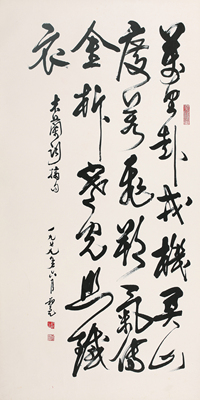 萬里赴戎機關山
度若飛朔氣傳
金柝寒光照鐵
衣
木蘭詩摘句
一九七九年六月